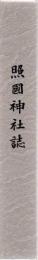 照國神社誌